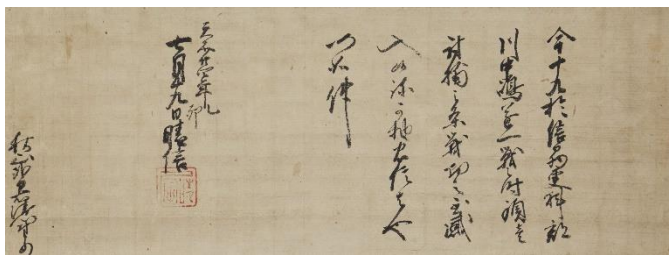 今十九於信州更科郡
川中嶋遂一戦時頸壱
討捕之条戦功之至感
入候弥可抽忠信者也
仍如件
天文廿四年乙卯
七月十九日晴信